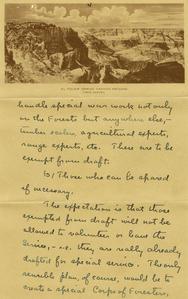 EL TOVAR GRAND CANYON ARIZONA
FRED HARVEY
handle special war work not only
on the Forests but anywhere else,-
timber scaler, agricultural experts,
range experts, etc. These are to be
exempt from draft.
B/ Those who can be spared
if necessary.
The expectation is that those
exempted from draft will not be
allowed to volunteer or leave the
Service, - i.e. they are really already
drafted for special service. The only
sensible plan, of course, would be to
create a special Corps of Foresters,